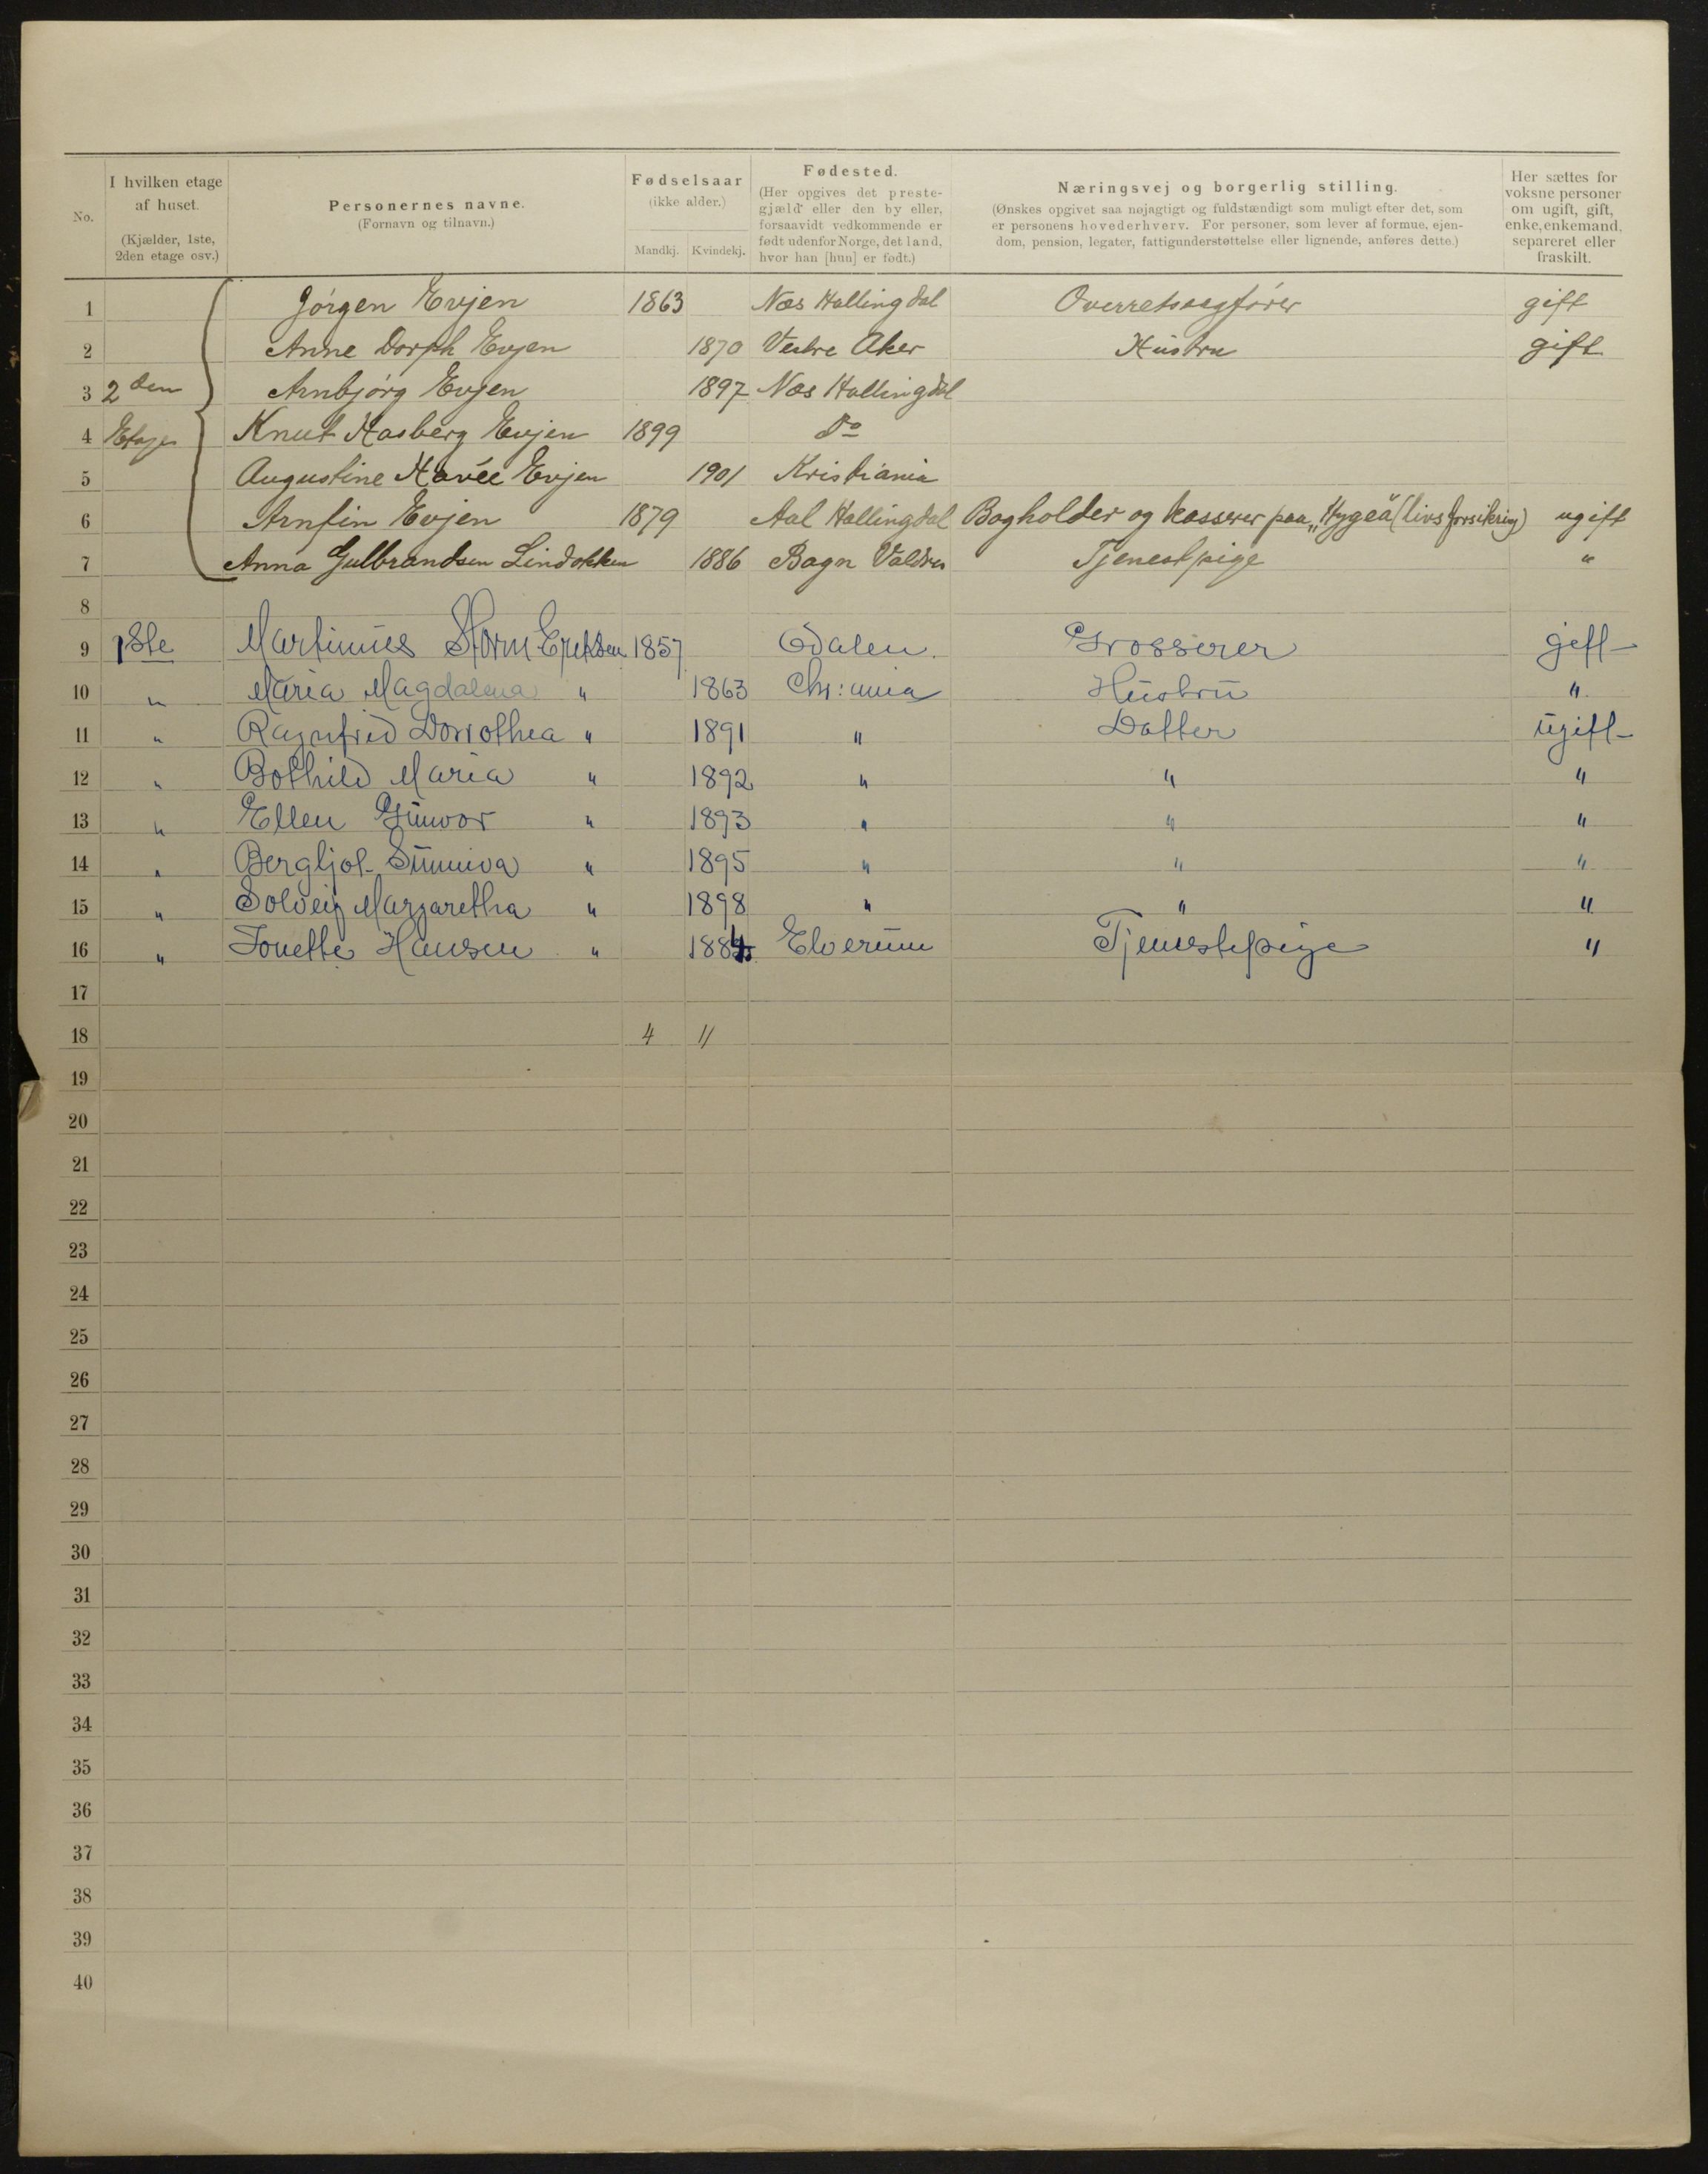 No.
I hvilken etage af huset.
(Kjælder, 1ste, 2den etage osv.)
Personernes navne.
(Fornavn og tilnavn.)
Fødselsaar
(ikke alder.)
Mandkj. Kvindekj.
Fødested.
(Her opgives det prestegjæld eller den by eller, forsaavidt vedkommende er født udenfor Norge, det land, hvor han [hun] er født.)
Næringsvej og borgerlig stilling.
(Ønskes opgivet saa nøjagtigt og fuldstændigt som muligt efter det, som er personens hovederhverv. For personer, som lever af formue, ejendom, pension, legater, fattigunderstøttelse eller lignende, anføres dette.)
Her sættes for voksne personer om ugift, gift, enke, enkemand, separeret eller fraskilt.
1 Jörgen Evjen 1863 Næs Hallingdal Overretssagfører gift
2 Anne Dorph Evjen 1870 Vestre Aker Hustru gift
3 2den Arnbjörg Evjen 1897 Næs Hallingdal
4 Etage Knut Hasberg Evjen 1899 Do
5 Augustine Havée Evjen 1901 Kristiania
6 Arnfin Evjen 1879 Aal Hallingdal Bogholder og kasserer paa „Hygea (livsforsikring) ugift
7 Anna Gulbrandsen Lindokken 1886 Bagn Valdres Tjenestpige "
8
9 1ste Martinius Storm Eriksen 1857 Odalen. Grosserer gift
10 " Maria Magdalena " 1863 Chr:ania Hustru "
11 " Ragnfrid Dorrothea " 1891 " Datter ugift
12 " Bothild Maria " 1892 " " "
13 " Ellen Gunvor " 1893 " " "
14 " Bergljot Sunniva " 1895 " " "
15 " Solveig Margaretha " 1898 " " "
16 " Jonette Hansen " 1884 Elverum Tjenestepige "
17
18 4 11
19
20
21
22
23
24
25
26
27
28
29
30
31
32
33
34
35
36
37
38
39
40